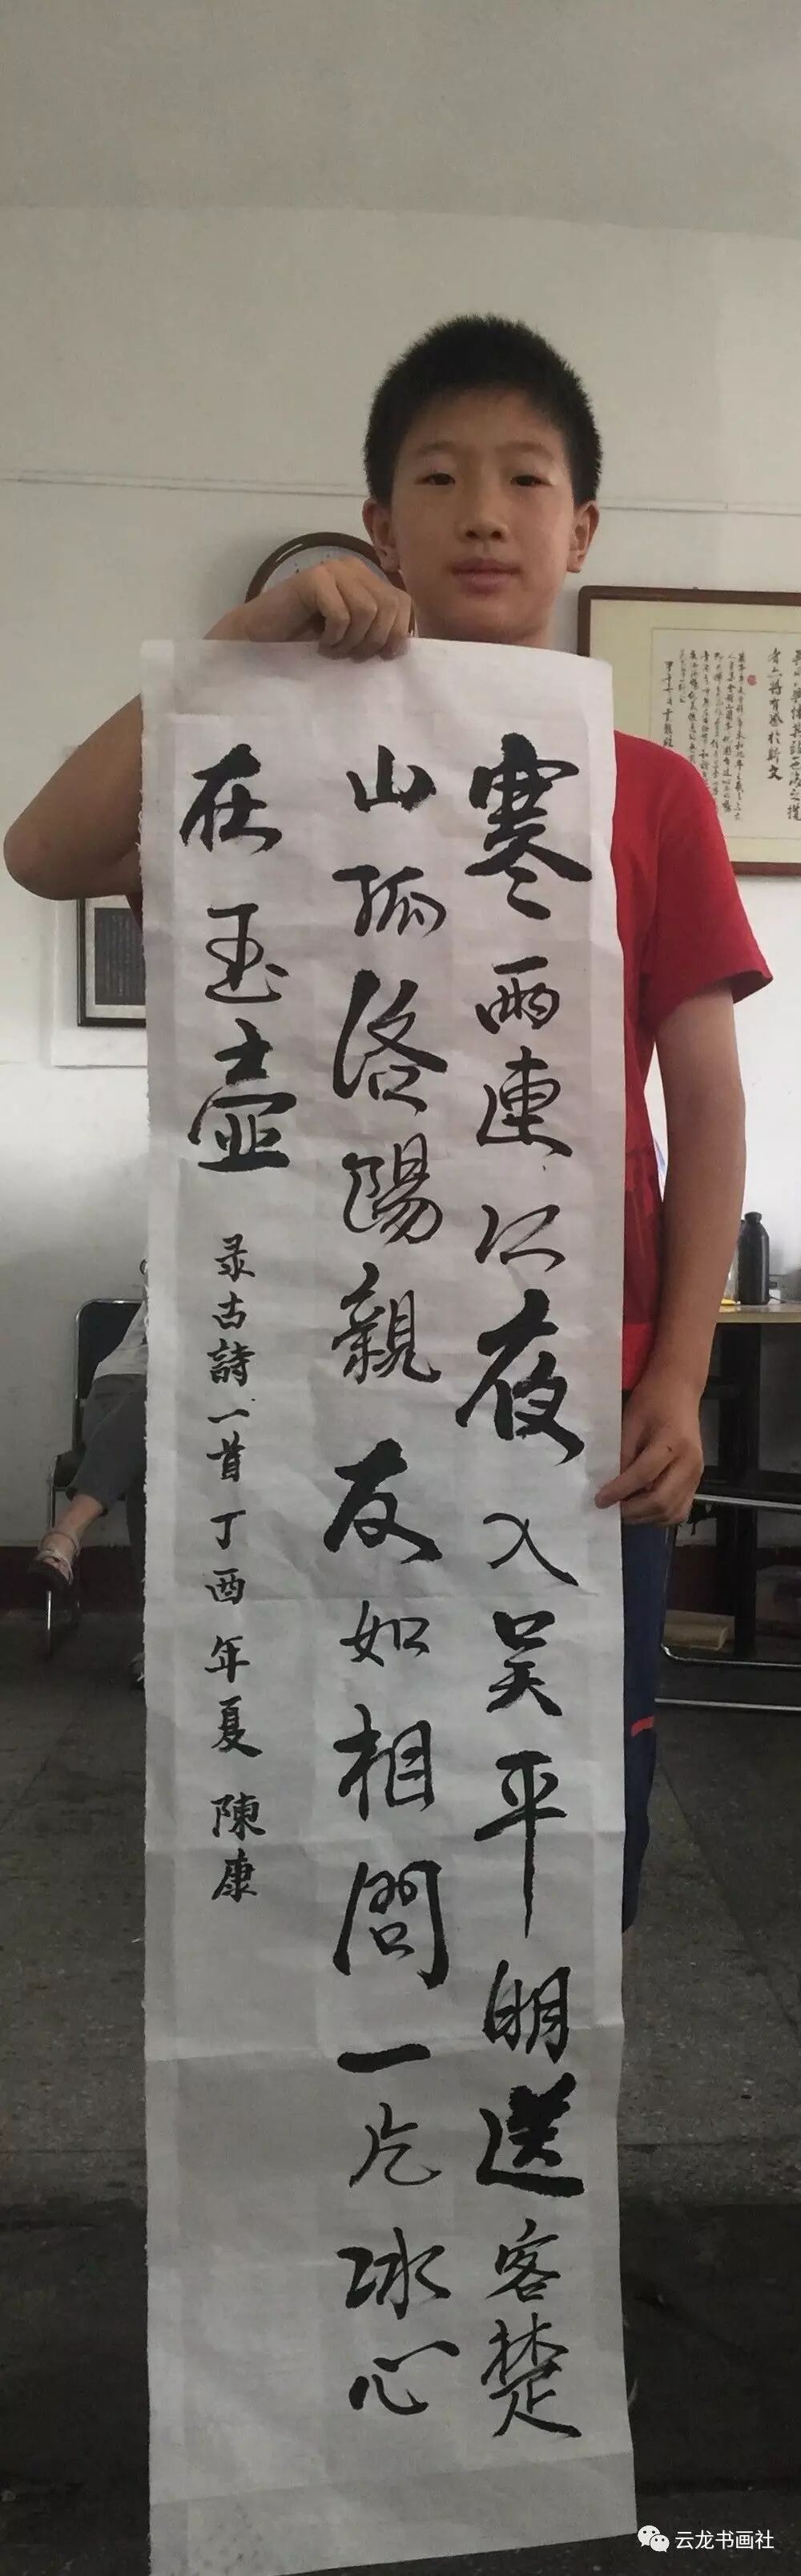 寒雨連江夜入吴平明送客楚
山孤洛陽親友如相問一片冰心
在玉壺
录古詩一首丁酉年夏 陳康
云龙书画社